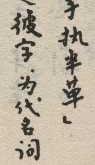 手执半草」
彼字，为代名词